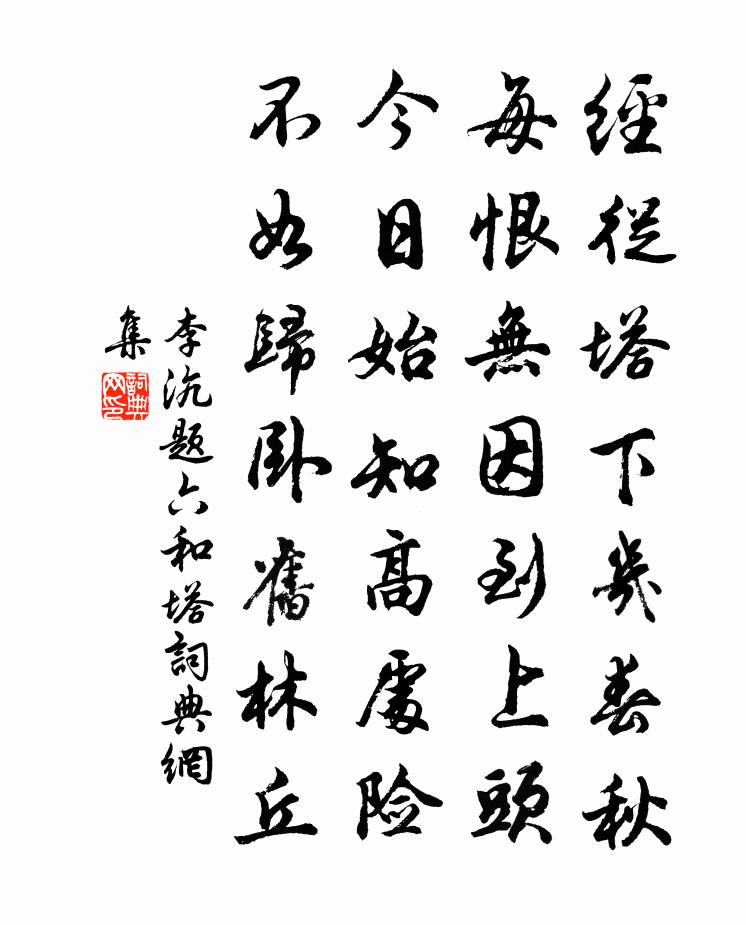 經從塔下幾春秋
每恨無因到上頭
今日始知高處险
不如歸卧舊林丘
李沆题六和塔詞典網
集
詞典网印